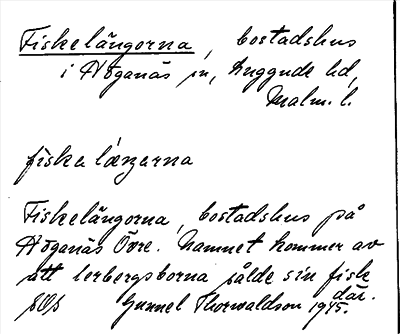 Fiskelängorna, bostadshus
i Höganäs sn, Luggude hd,
Malm. l.
fiskelæŋarna
Fiskelängorna, bostadshus på
Höganäs Övre. Namnet kommer av
att lerbergsborna sålde sin fisk
där.
Gunnel Thorwaldson 1945.